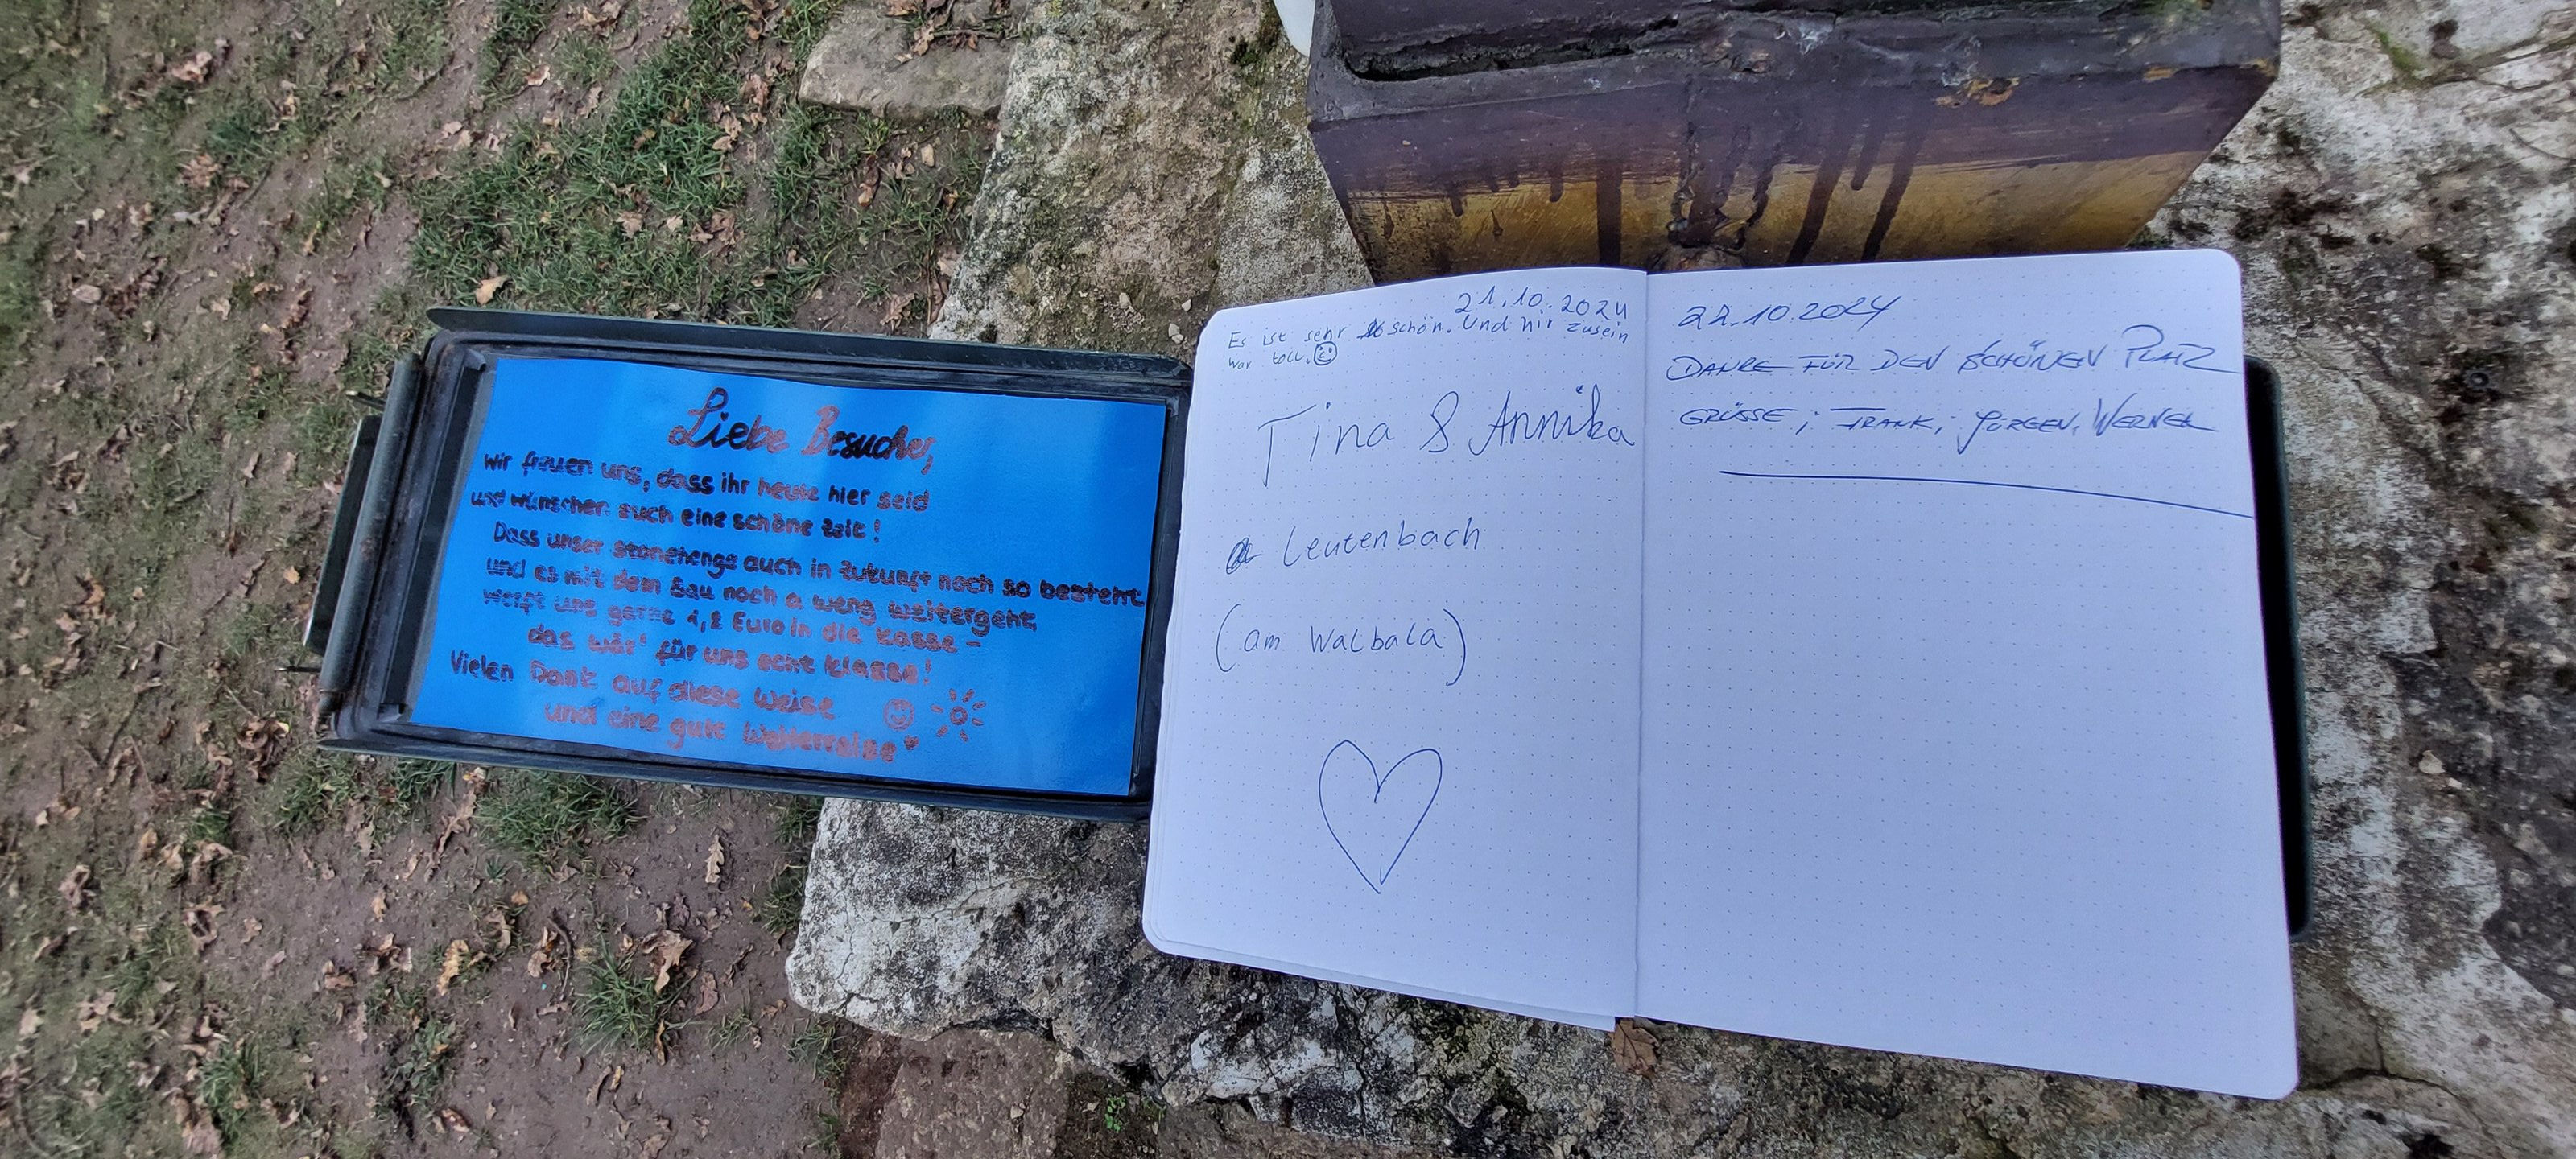 Liebe Besucher,
wir freuen uns, dass ihr heute hier seid
und wünschen euch eine schöne Zeit!
Dass unser Stonehenge auch in Zukunft noch so besteht
und es mit dem Bau noch a weng weitergeht,
werft uns gerne 1,2 Euro in die Kasse -
das wär' für uns echt klasse!
Vielen Dank auf diese Weise
und eine gute Weiterreise
21.10.2024
Es ist sehr schön. Und hir zusein
war toll.
Tina & Annika
Leutenbach
(am Walbala)
22.10.2024
DANKE FÜR DEN SCHÖNEN PLATZ
GRÜSSE; FRANK, JÜRGEN, WERNER